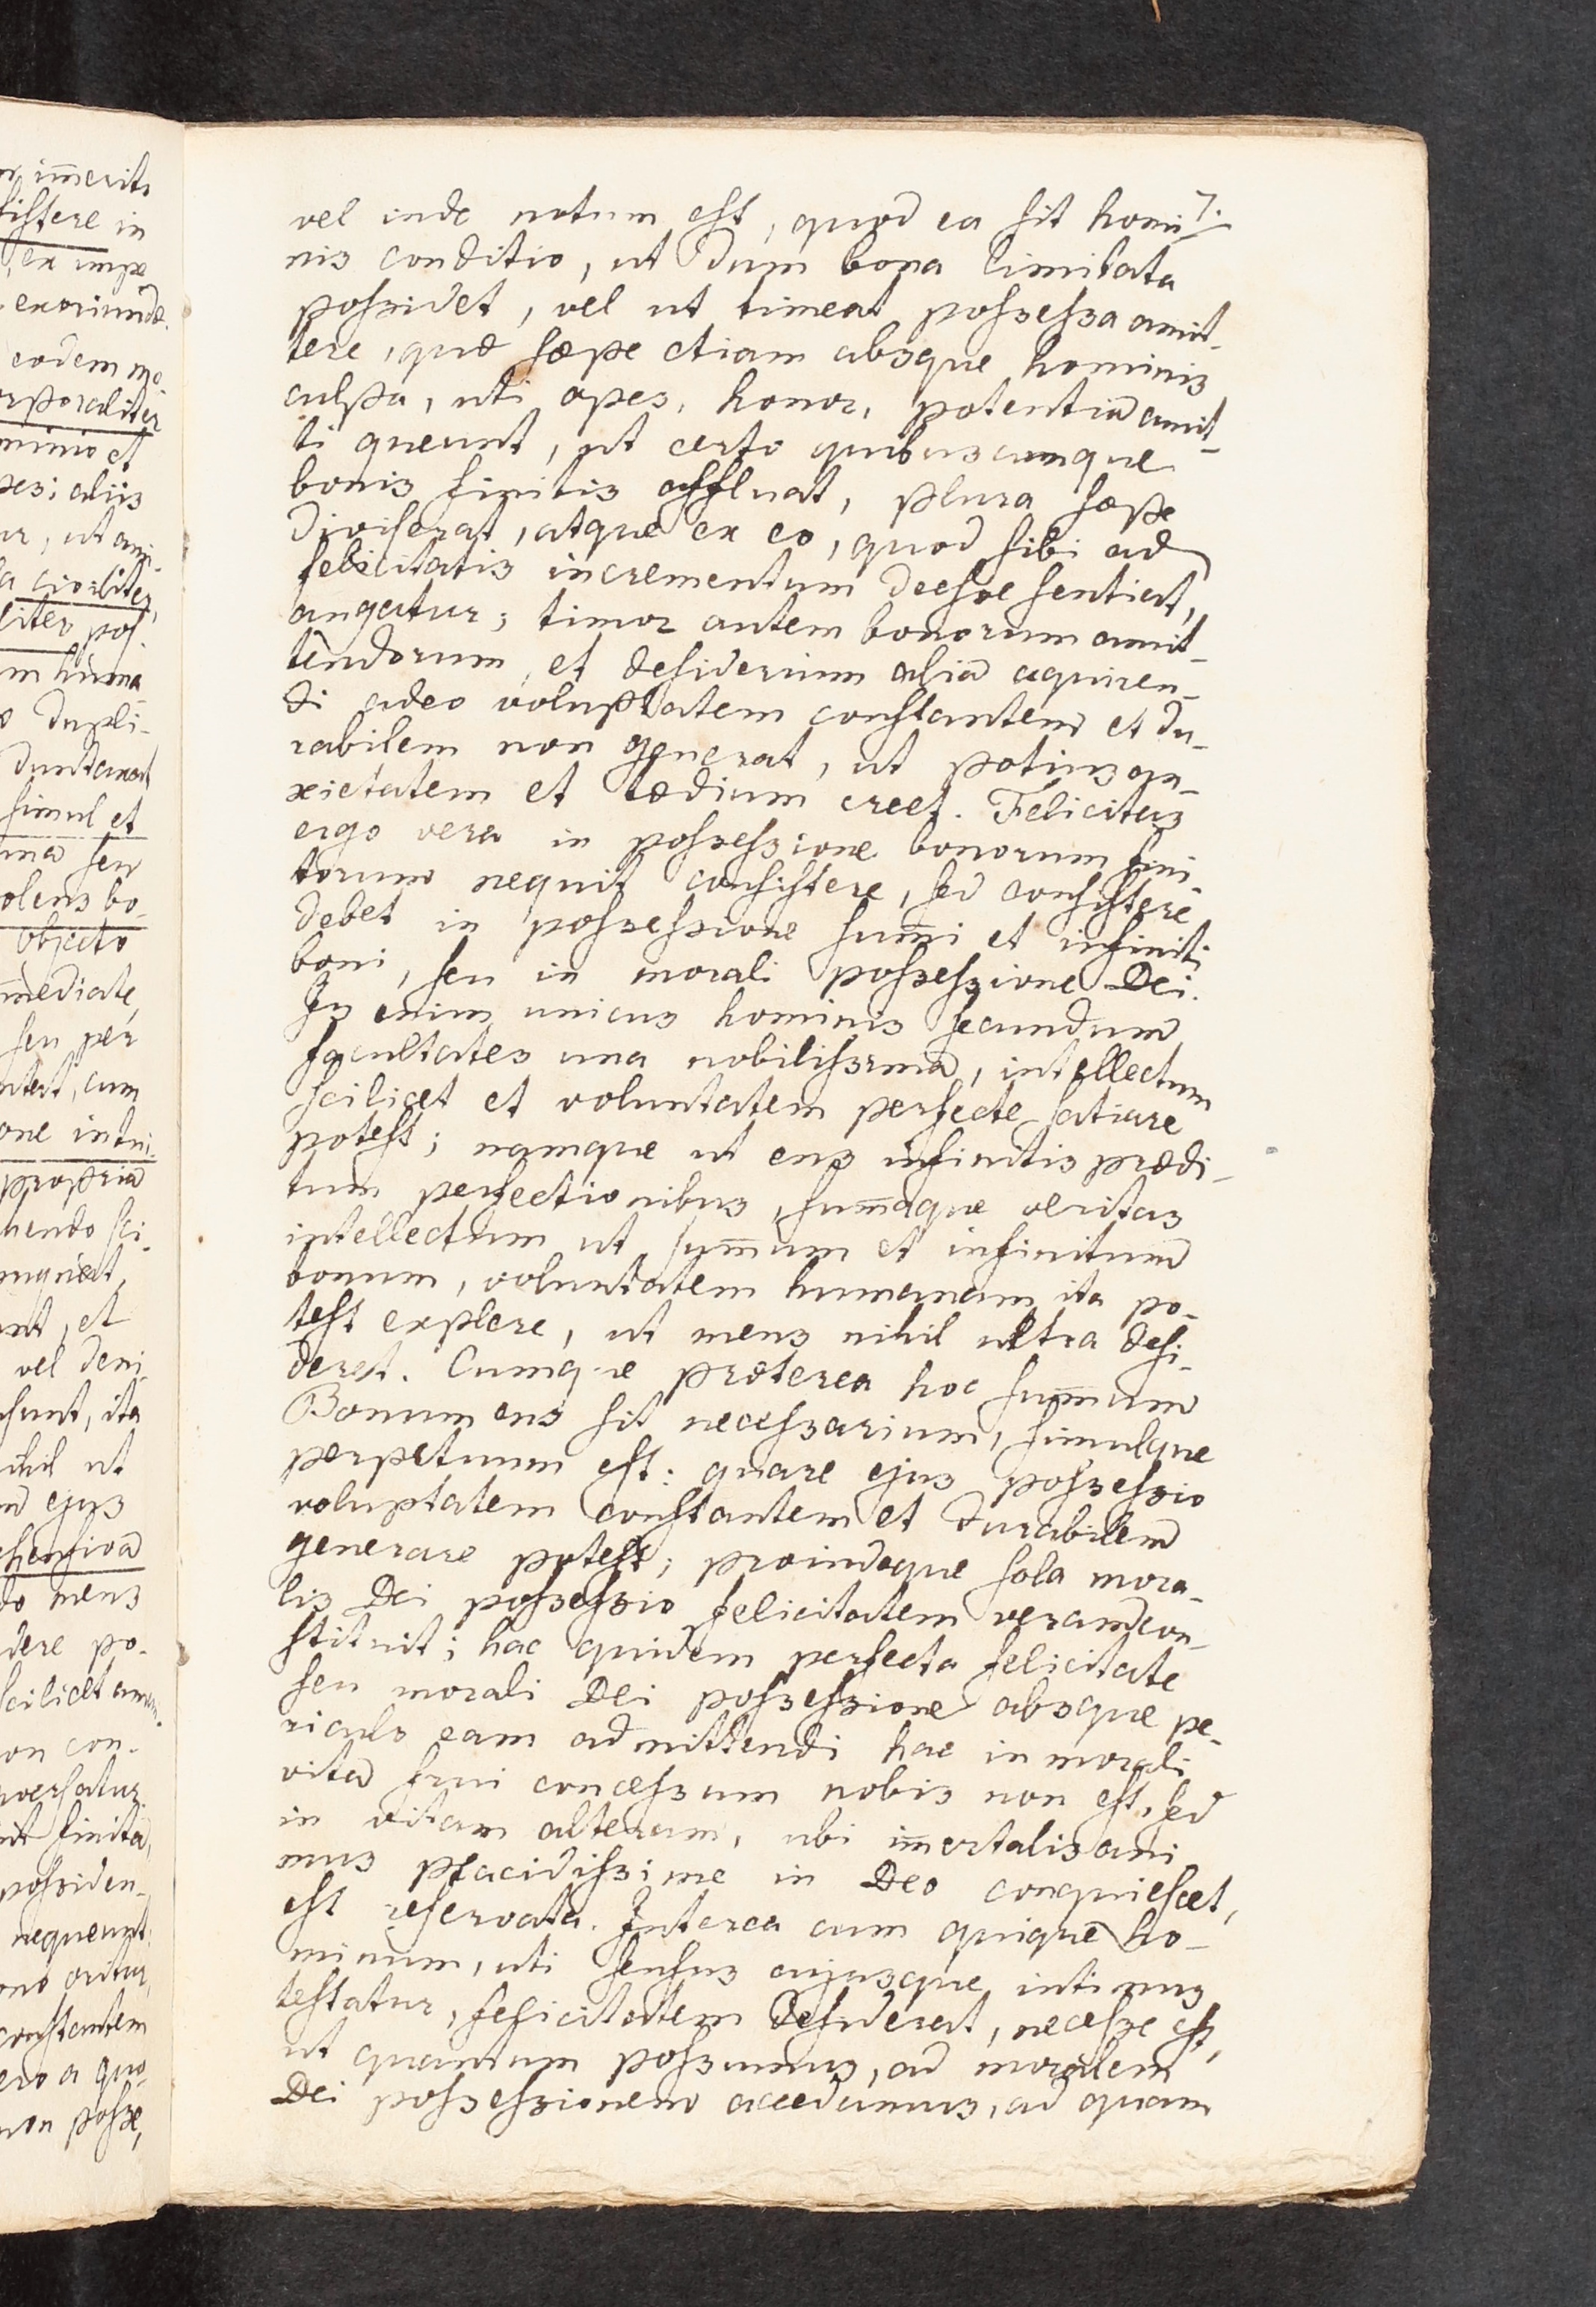 7.
vel inde notum est, quod ea sit homi-
nis conditio, ut dum bona limitata
possidet, vel ut timeat possessa amit-
tere, quæ sæpe etiam absque hominis
culpa, uti opes, honor, potentia amit-
ti queunt, ut certo quibuscumque
bonis finitis affluat, plura sæpe
atque ex eo, quod sibi ad
felicitatis incrementum deesse sentiat,
angatur; timor autem bonorum amit-
tendorum, et desiderium alia aquiren-
di adeo voluptatem constantem et du-
rabilem non generat, ut potius an-
xietatem et tædium creet. Felicitas
ergo vera in possessione bonorum fini-
torum nequit consistere, sed consistere
debet in possessione sum̄i et infiniti
boni, seu in morali possessione Dei.
Is enim unicus hominis secundum
facultates una nobilissima, intellectum
scilicet et voluntatem perfecte satiare
potest; namque ut ens infinitis prædi-
tum perfectionibus, sum̄aque veritas
intellectum ut sum̄um et infinitum
bonum, voluntatem humanam ita po-
test explere, ut mens nihil ultra desi-
deret. Cumque præterea hoc sum̄um
Bonum ens sit necessarium, simulque
perpetuum est: quare ejus possessio
voluptatem constantem et durabilem
generare potest; proindeque sola mora-
lis Dei possessio felicitatem veram con-
stituit; hac quidem perfecta felicitate
seu morali Dei possessione absque pe-
riculo eam admittendi hac in morali
vita frui concessum nobis non est, sed
in vitam alteram, ubi im̄ortalis ani-
mus placidissime in Deo conquiescet,
est reservata. Interea cum quique ho-
minum, uti sensus cujusque intimus
testatur, felicitatem desiderat, necesse est,
ut quantum possumus, ad moralem
Dei possessionem accedamus, ad quam